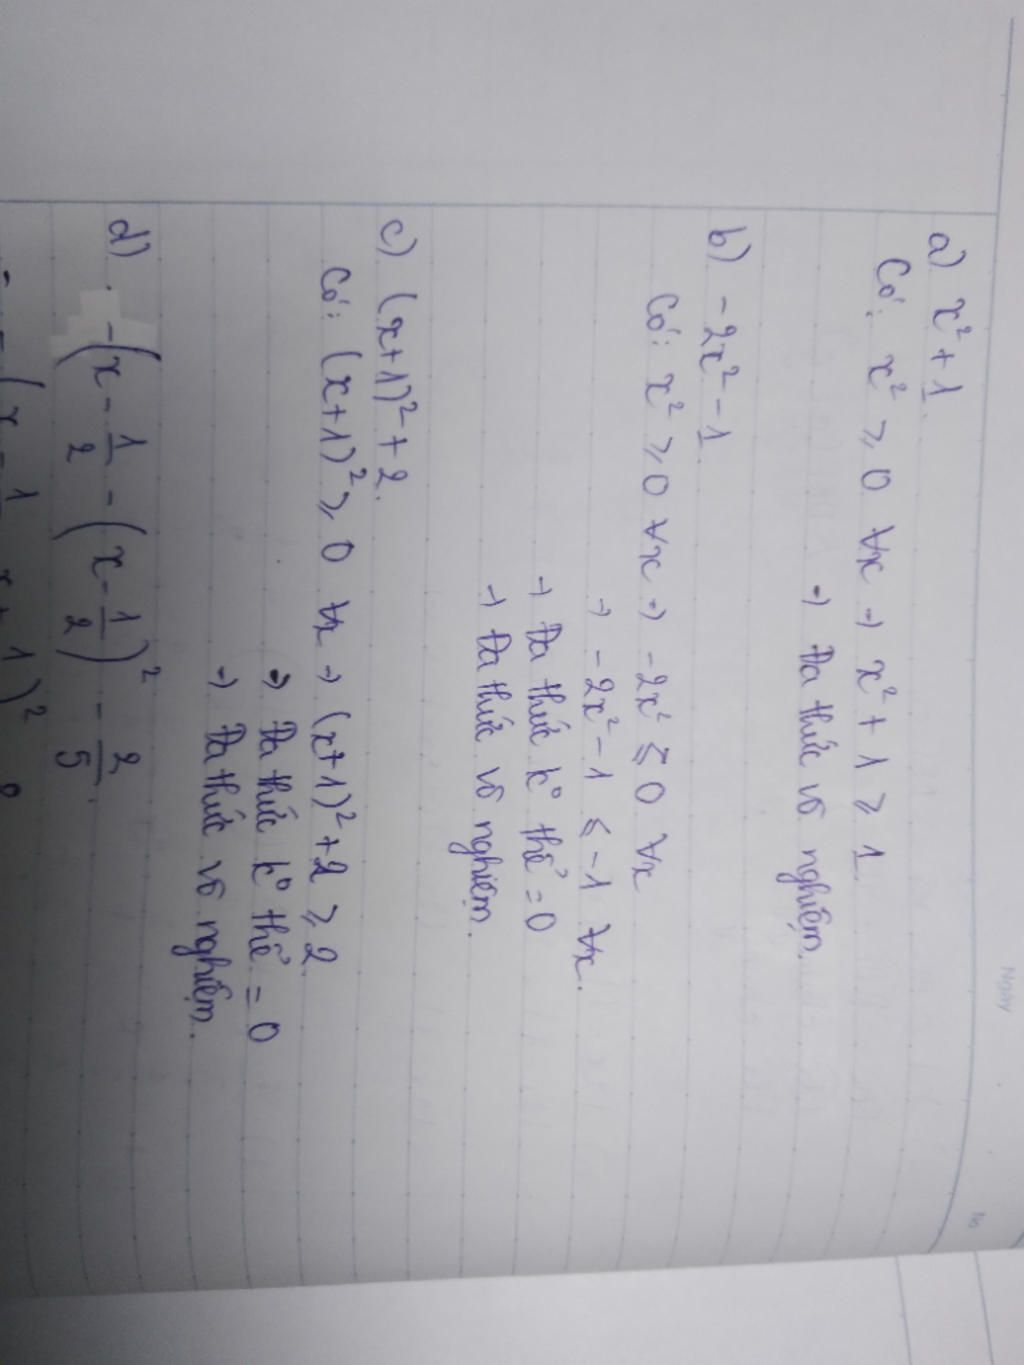 Ngày
No
a) x² + 1.
Có: x² ≥ 0 ∀x → x² + 1 ≥ 1
→ Đa thức vô nghiệm.
b) -2x² - 1.
Có: x² ≥ 0 ∀x → -2x² ≤ 0 ∀x
→ -2x² - 1 ≤ -1 ∀x.
→ Đa thức k° thể = 0
→ Đa thức vô nghiệm.
c) (x+1)² + 2.
Có: (x+1)² ≥ 0 ∀x → (x+1)² + 2 ≥ 2.
→ Đa thức k° thể = 0
→ Đa thức vô nghiệm.
d) -(x - 1/2 - (x - 1/2)² - 2/5.